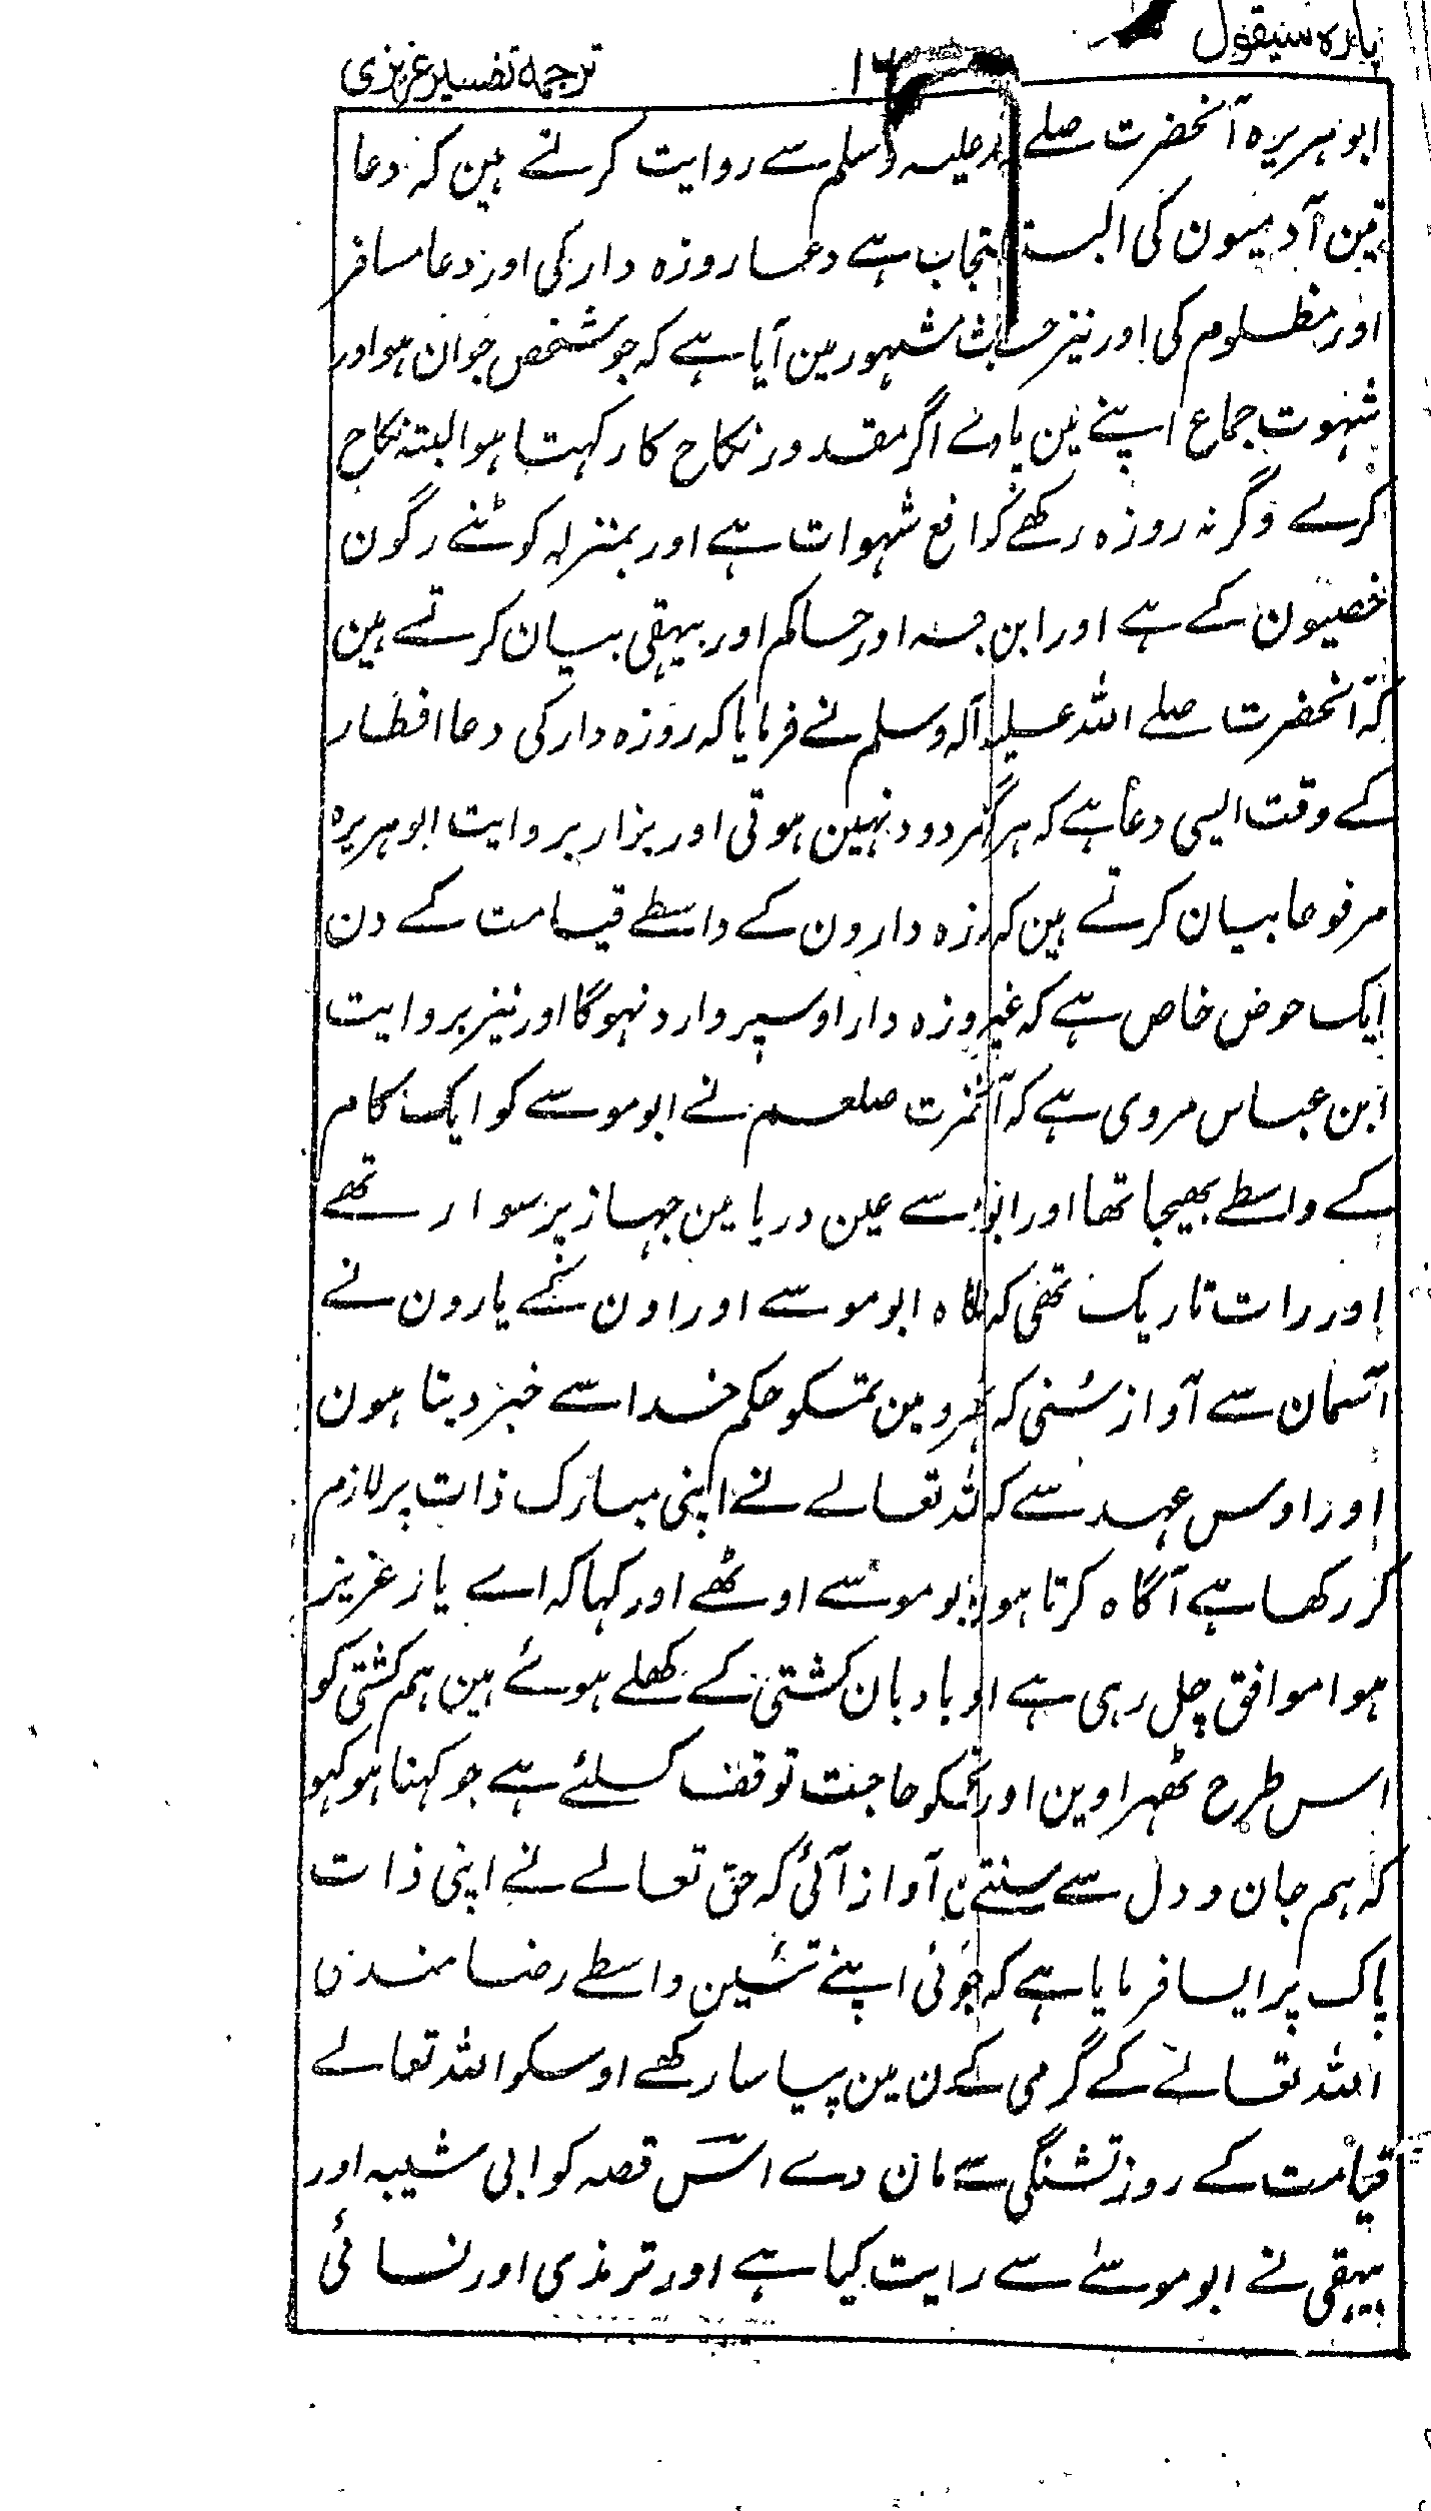 پارہ سیقول
ترجمہ تفسیر عزیزی
ابو ہریرہ آنحضرت صلے علیہ وسلم سے روایت کرتے ہین کہ دعا
تین آدمیون کی البتہ ہے دعا روزہ دار کی اور دعا مسافر
اور مظلوم کی اور نیز مشہور مین آیا ہے کہ جو شخص جوان ہو اور
شہوت جماع اپنے مین پاوے اگر مقدور نکاح کا رکہتا ہو البتہ نکاح
کرے وگرنہ روزہ رکھے شہوات ہے اور بمنزلہ کوٹنے رگون
خصیون کے ہے اور ابن اور حاکم اور بیہقی بیان کرتے ہین
کہ آنحضرت صلے اللہ علیہ آلہ وسلم نے فرمایا کہ روزہ دار کی دعا افطار
کے وقت ایسی دعا ہے کہ ہرگز مردود نہین ہوتی اور بزار بروایت ابو ہریرہ
مرفوعا بیان کرتے ہین کہ روزہ دارون کے واسطے قیامت کے دن
ایک حوض خاص ہے کہ غیر روزہ دار اوسپر وارد نہوگا اور نیز بروایت
ابن عباس مروی ہے کہ آنحضرت صلعم نے ابو موسے کو ایک کام
کے واسطے بھیجا تھا اور عین دریا مین جہاز پر سوار تھے
اور رات تاریک تھی کہ ابو موسے اور اون کے یارون نے
آسمان سے آواز سُنی کہ مین تمکو حکم خدا سے خبر دیتا ہون
اور اوس عہد سے کہ اللہ تعالے نے اپنی مبارک ذات پر لازم
کر رکھا ہے آگاہ کرتا ہون ابو موسے اوٹھے اور کہا کہ اے یار عزیز
ہوا موافق چل رہی ہے اور بادبان کشتی کے کھلے ہوئے ہین ہم کشتی کو
اس طرح ٹھہراوین اور تمکو حاجت توقف کسلئے ہے جو کہنا ہو کہو
کہ ہم جان و دل سے سنتے ہین آواز آئی کہ حق تعالے نے اپنی ذات
پاک پر ایسا فرمایا ہے کہ جو کوئی اپنے تئین واسطے رضامندی
اللہ تعالے کے گرمی کے دن مین پیاسا رکھے اوسکو اللہ تعالے
قیامت کے روز تشنگی سے امان دے اس قصہ کو ابی شیبہ اور
بیہقی نے ابو موسے سے روایت کیا ہے اور ترمذی اور نسائی